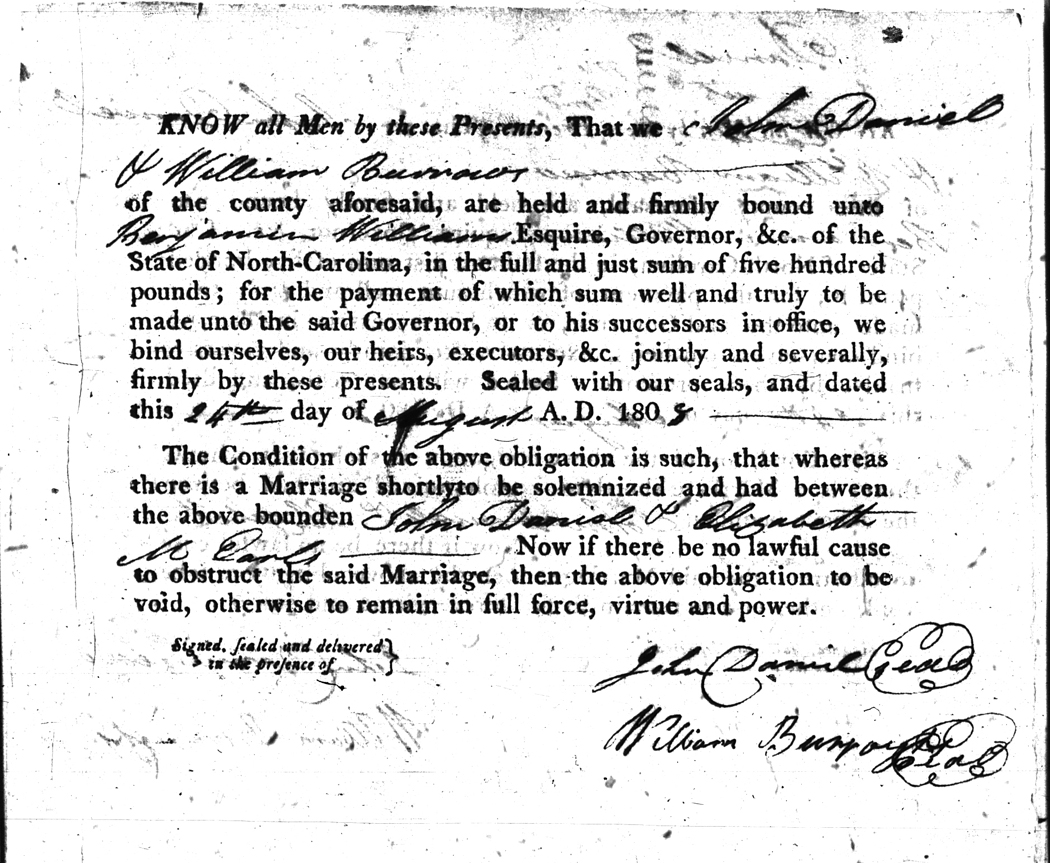 KNOW all Men by these Presents, That we John Daniel
& William Burrows
of the county aforesaid, are held and firmly bound unto
Benjamin Williams Esquire, Governor, &c. of the
State of North-Carolina, in the full and just sum of five hundred
pounds; for the payment of which sum well and truly to be
made unto the said Governor, or to his successors in office, we
bind ourselves, our heirs, executors, &c. jointly and severally,
firmly by these presents. Sealed with our seals, and dated
this 24th day of August A. D. 1808
The Condition of the above obligation is such, that whereas
there is a Marriage shortly to be solemnized and had between
the above bounden John Daniel & Elizabeth
M
Now if there be no lawful cause
to obstruct the said Marriage, then the above obligation to be
void, otherwise to remain in full force, virtue and power.
Signed, sealed and delivered
in the presence of
John Daniel Seal
William Burrows Seal